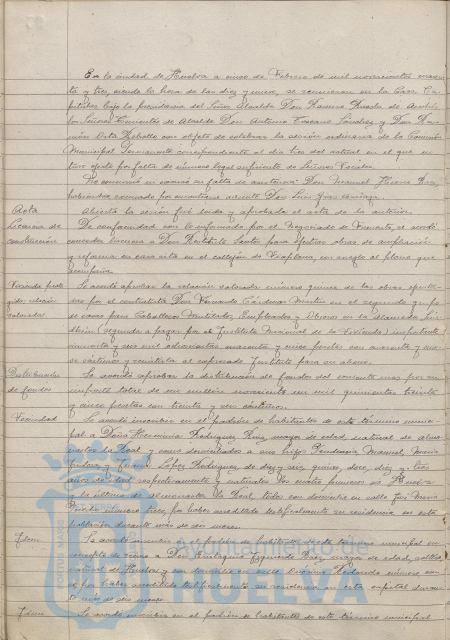 En la ciudad de Huelva a cinco de Febrero de mil novecientos cuaren-
ta y tres, siendo la hora de las diez y nueve, se reunieron en la Casa Ca-
pitular bajo la presidencia del Señor Alcalde Don Ramiro
los Señores Tenientes de Alcalde Don Antonio Toscano y Don Ra-
món Rebollo con objeto de celebrar la sesión ordinaria de la Comisión
Municipal Permanente correspondiente al día tres del actual en el que no
tuvo efecto por falta de número legal suficiente de Señores Vocales.
No concurrió ni excusó su falta de asistencia Don Manuel
habiéndose excusado por encontrarse ausente Don Luis
Acta
Abierta la sesión fué leída y aprobada el acta de la anterior.
Licencia de
construcción
De conformidad con lo informado por el Negociado de Fomento, se acordó
conceder licencia a Don para efectuar obras de ampliación
y reforma en casa sita en el callejón de con arreglo al plano que
acompaña.
Vivienda prote-
gida, relación
valorada
Se acordó aprobar la relación valorada número quince de las obras ejecuta-
das por el contratista Don Cárdenas en el segundo grupo
de casas para Caballeros Mutilados, Empleados y Obreros en la Alameda
(segunda a pagar por el Instituto Nacional de la Vivienda) importante
cincuenta y seis mil cuarenta y cinco pesetas con cuarenta y
céntimos y remitirla al expresado Instituto para su abono.
Distribución
de fondos
Se acordó aprobar la distribución de fondos del corriente mes por un
importe total de un millón novecientas un mil quinientas treinta
y cinco pesetas con treinta y un céntimos.
Vecindad
Se acordó inscribir en el padrón de habitantes de este término munici-
pal a Doña Herminia Rodríguez Ruiz, mayor de edad, natural de Almo-
naster la Real y como domiciliados a sus hijos Prudencia, Manuel, María
y López Rodríguez, de diez y seis, quince, doce, diez y tres
años de edad respectivamente y naturales los cuatro primeros de Huelva
y la última de Almonaster la Real, todos con domicilio en calle
número por haber acreditado testificalmente su residencia en esta
población durante más de seis meses.
Idem
Se acordó inscribir en el padrón de habitantes de este término municipal
en concepto de vecino a Don Izquierdo mayor de edad, soltero,
natural de Huelva y con domicilio en calle número
por haber acreditado testificalmente su residencia en esta capital duran-
te más de seis meses.
Idem
Se acordó inscribir en el padrón de habitantes de este término municipal
Ayuntamiento de
HUELVA